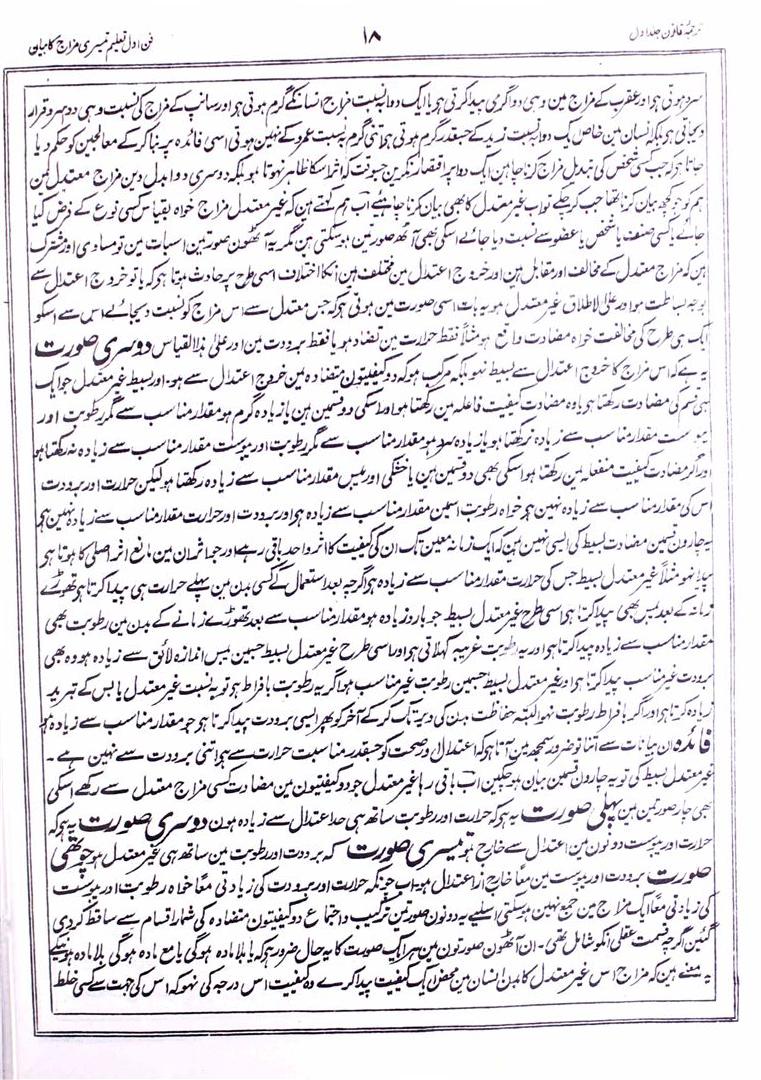 ترجمۂ قانون جلد اول
۱۸
فن اول تعلیم تیسری مزاج کا بیان
سرد ہوتی ہو اور عقرب کے مزاج مین وہی دوا گرمی پیدا کرتی ہو یا ایک دوا بہ نسبت مزاج انسان کے گرم ہوتی ہو اور سانپ کے مزاج کی نسبت وہی دوا سرد قرار
دیجاتی ہو بلکہ انسان مین خاص ایک دوا بہ نسبت زید کے جسقدر گرم ہوتی ہو اتنی گرم بہ نسبت عمرو کے نہین ہوتی اسی فائدہ پر بنا کرکے معالجین کو حکم دیا
جاتا ہو کہ جب کسی شخص کی تبدیل مزاج کرنا چاہین ایک دوا پر اقتصار نکرین جسوقت کہ اثر اسکا ظاہر نہوتا ہو بلکہ دوسری دوا بدل دین مزاج معتدل مین
ہم کو جو کچھ بیان کرنا تھا جب کر چکے تو اب غیر معتدل کا بھی بیان کرنا چاہیے اب ہم کہتے ہین کہ غیر معتدل مزاج خواہ بقیاس کسی نوع کے فرض کیا
جائے یا کسی صنف یا شخص یا عضو سے نسبت دیا جائے اسکی بھی آٹھ صورتین ہوسکتی ہین مگر یہ آٹھون صورتین اس بات مین تو مساوی اور مشترک
ہین کہ مزاج معتدل کے مخالف اور مقابل ہین اور خروج اعتدال مین مختلف ہین انکا اختلاف اسی طرح پر حادث ہوتا ہے کہ یا تو خروج اعتدال سے
بوجہ بساطت ہو اور علی الاطلاق غیر معتدل ہو یہ بات اسی صورت مین ہوتی ہو کہ جس معتدل سے اس مزاج کو نسبت دیجائے اس سے اسکو
ایک ہی طرح کی مخالفت خواہ مضادت واقع ہو مثلاً فقط حرارت مین تضاد ہو یا فقط برودت مین اور علی ہذا القیاس دوسری صورت
یہ ہے کہ اس مزاج کا خروج اعتدال سے بسیط نہو بلکہ مرکب ہو کہ دو کیفیتون متضادہ مین خروج اعتدال سے ہو۔ اور بسیط غیر معتدل جو ایک
ہی قسم کی مضادت رکھتا ہو یا وہ مضادت کیفیت فاعلہ مین رکھتا ہو اور اسکی دو قسمین ہین یا زیادہ گرم ہو مقدار مناسب سے مگر رطوبت اور
یبوست مقدار مناسب سے زیادہ نرکھتا ہو یا زیادہ سرد ہو مقدار مناسب سے مگر رطوبت اور یبوست مقدار مناسب سے زیادہ نہ رکھتا ہو
اور اگر مضادت کیفیت منفعلہ مین رکھتا ہو اسکی بھی دو قسمین ہین یا خشکی اور یبس مقدار مناسب سے زیادہ رکھتا ہو لیکن حرارت اور برودت
اس کی مقدار مناسب سے زیادہ نہین ہو خواہ رطوبت اسمین مقدار مناسب سے زیادہ ہو اور برودت اور حرارت مقدار مناسب سے زیادہ نہین ہو
یہ چارون قسمین مضادت بسیط کی ایسی نہین ہین کہ ایک زمانہ معین تک ان کی کیفیت کا اثر واحد باقی رہے اور جو اثر ان مین مانع اثر اصلی کا ہوتا ہو
پیدا نہو مثلاً غیر معتدل بسیط جس کی حرارت مقدار مناسب سے زیادہ ہو اگرچہ بعد استعمال کے کسی بدن مین پہلے حرارت ہی پیدا کرتا ہو تھوڑے
زمانہ کے بعد یبس بھی پیدا کرتا ہو اسی طرح غیر معتدل بسیط جو بارد زیادہ ہو مقدار مناسب سے بعد تھوڑے زمانے کے بدن مین رطوبت بھی
مقدار مناسب سے زیادہ پیدا کرتا ہو اور یہ رطوبت غریبہ کہلاتی ہو اور اسی طرح غیر معتدل بسیط جسمین یبس اندازہ لائق سے زیادہ ہو وہ بھی
برودت غیر مناسب پیدا کرتا ہو اور غیر معتدل بسیط جسمین رطوبت غیر مناسب ہو اگر یہ رطوبت بافراط ہو تو بہ نسبت غیر معتدل یابس کے تبرید
زیادہ کرتا ہو اور اگر بافراط رطوبت نہو البتہ حفاظت بدن کی دیر تک کرکے آخر کو پھر ایسی برودت پیدا کرتا ہو جو مقدار مناسب سے زیادہ ہو
فائدہ ان بیانات سے اتنا تو ضرور سمجھ مین آتا ہو کہ اعتدال و صحت کو جسقدر مناسبت حرارت سے ہو اتنی برودت سے نہین ہے۔
غیر معتدل بسیط کی تو یہ چارون قسمین بیان ہو چکین اب باقی رہا غیر معتدل جو دو کیفیتون مین مضادت کسی مزاج معتدل سے رکھے اسکی
بھی چار صورتین ہین پہلی صورت یہ ہو کہ حرارت اور رطوبت ساتھ ہی حد اعتدال سے زیادہ ہون دوسری صورت یہ ہو کہ
حرارت اور یبوست دونون مین اعتدال سے خارج ہو تیسری صورت کہ برودت اور رطوبت مین ساتھ ہی غیر معتدل ہو چوتھی
صورت برودت اور یبوست مین معاً خارج از اعتدال ہو۔ اب چونکہ حرارت اور برودت کی زیادتی معاً خواہ رطوبت اور یبوست
کی زیادتی معاً ایک مزاج مین جمع نہین ہوسکتی اسلیے یہ دونون صورتین ترکیب و اجتماع دو کیفیتون متضادہ کی شمار اقسام سے ساقط کردی
گئین اگرچہ قسمت عقلی انکو شامل تھی۔ ان آٹھون صورتون مین ہر ایک صورت کا یہ حال ضرور ہو کہ یا بلامادہ ہوگی یا مع مادہ ہوگی بلامادہ ہونیکے
یہ معنے ہین کہ مزاج اس غیر معتدل کا بدن انسان مین محض ایک کیفیت پیدا کرے وہ کیفیت اس درجہ کی نہو کہ اس کی جہت سے کسی خلط